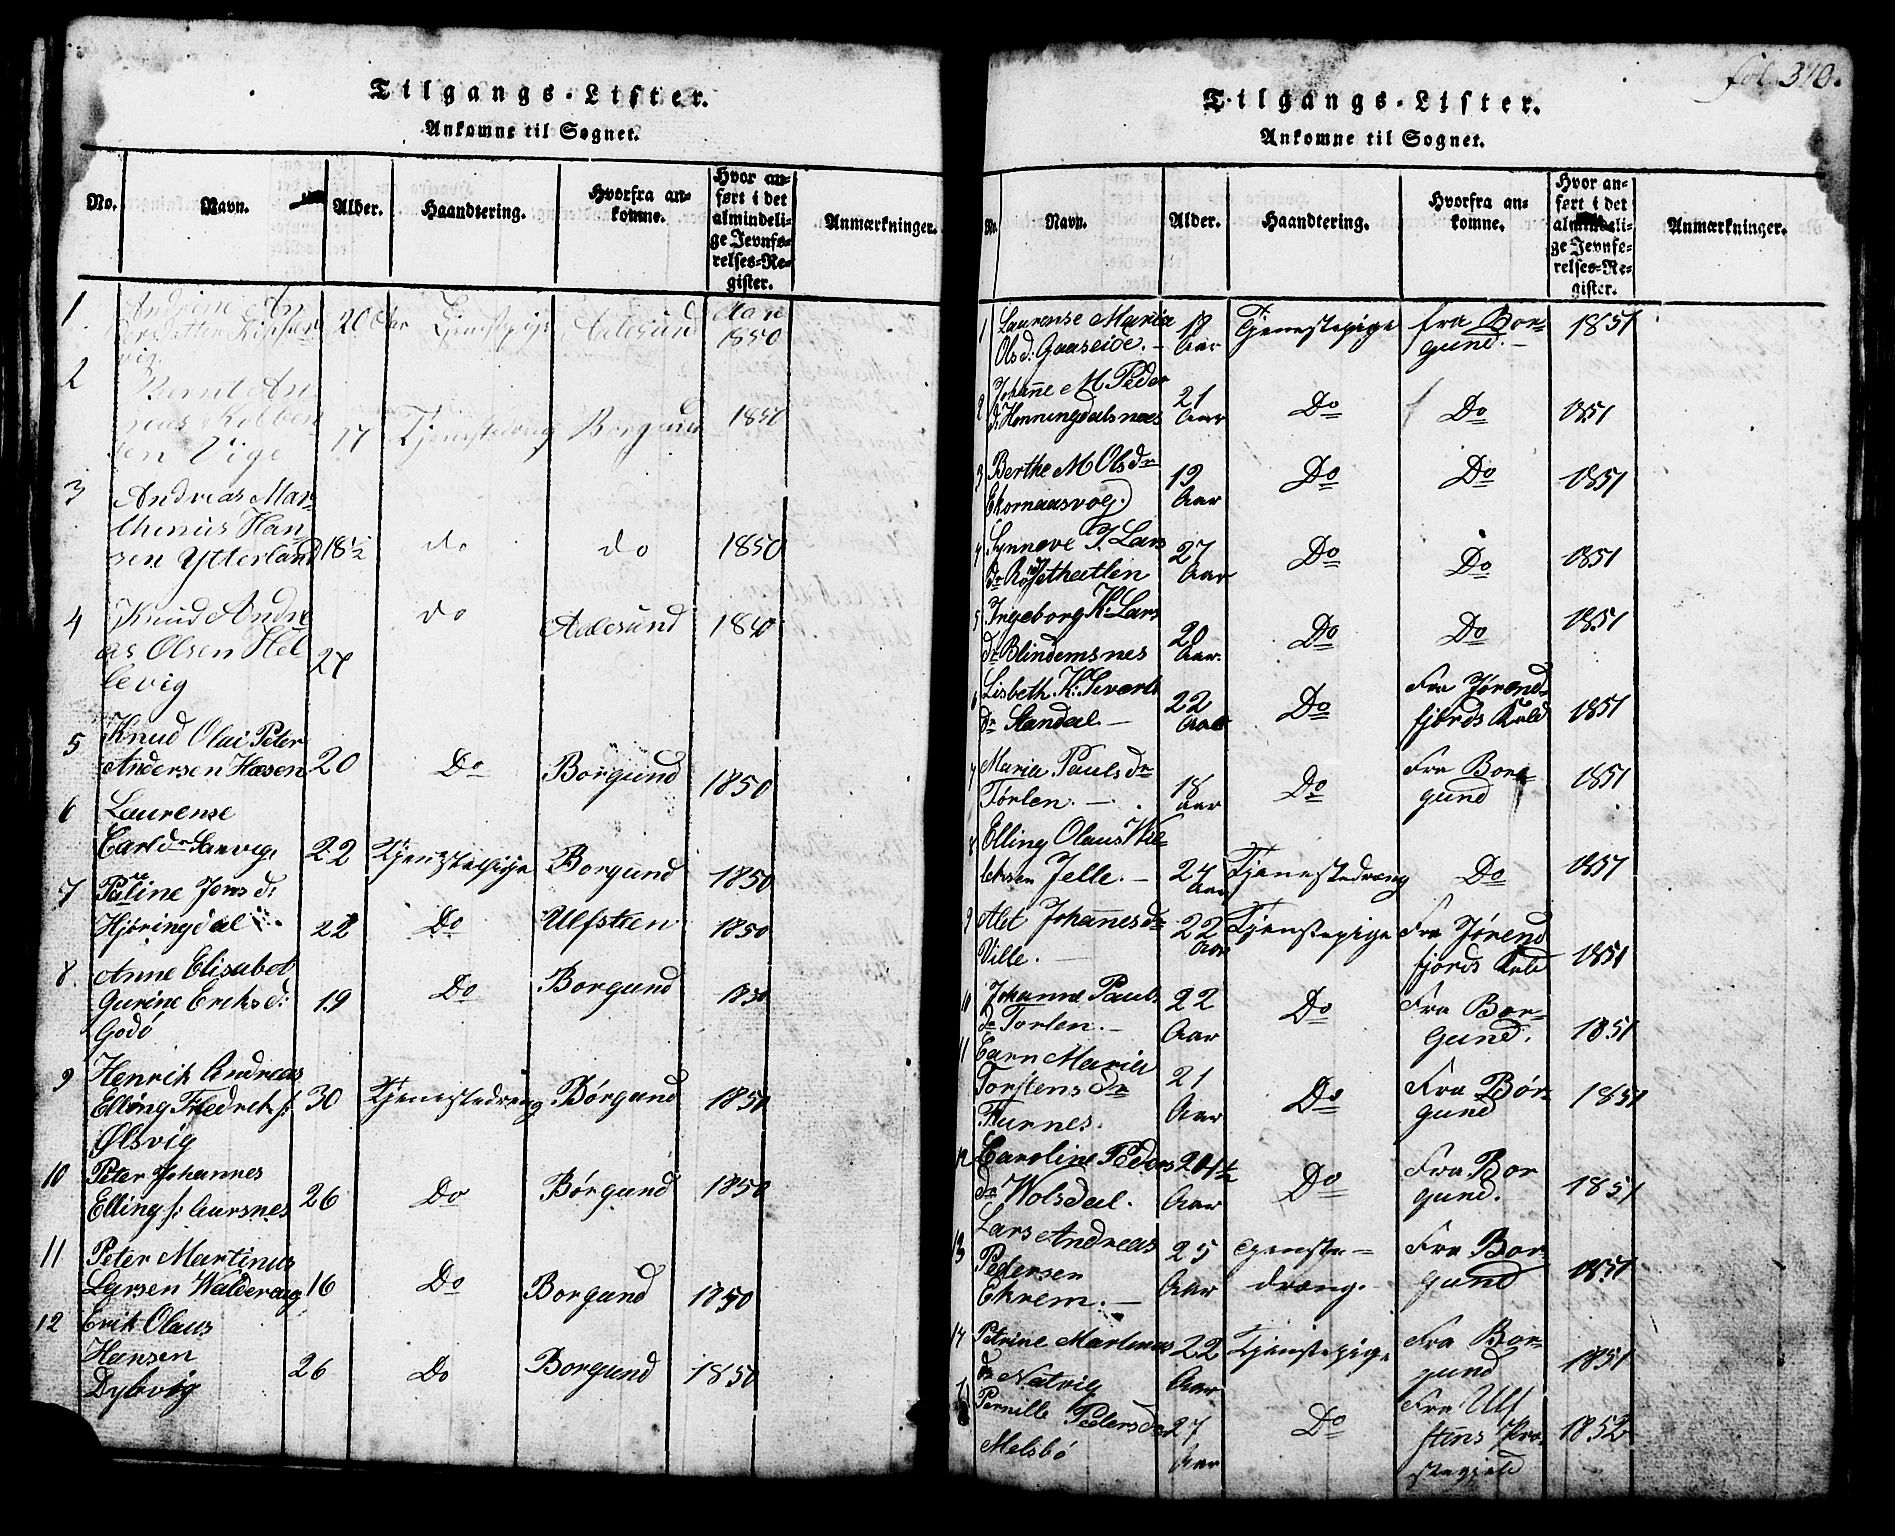 Tilgangs-Lister.
Ankomne til Sognet.
No. Navn. Alder. Haandtering. Hvorfra ankomne. Hvor anført i det almindelige Jevnførelses-Register. Anmærkninger.
1 Andrine An
dersdatter 20 Aar Tjenstepige Aalesund Aar
vig. 1850
2 Bernt An
Kolben
sen Vige 17 Tjenestedreng Borgund 1850
3 Andreas Mar
thinus Han
sen Ytterland 18½ do do 1850
4 Knud Andre
as Olsen Hel
levig 27 do Aalesund 1840
5 Knud Olai Peter
Andersen Hæsen 20 Do Borgund 1850
6 Laurense
Carl dr Sanvig, 22 Tjenstepige Borgund 1850
7 Paline Jens d:
Hjøringdal 22 Do Ulfsteen 1850
8. Anne Elisabet
Gurine Eriks d: 19 Do Borgund 1850
Godö
9 Henrik Andreas
Elling Fredrek s: 30 Tjenestedreng Börgund 1850
Ølsvig
10 Peter Johannes
Elling s: Aursnes 26 Do Börgund 1850
11 Peter Martinus
Larsen Walderoug 16 Do Borgund 1850
12 Erik Olaus
Hansen
Dybvig 26 Do Borgund 1850
fol. 310.
Tilgangs-Lister.
Ankomne til Sognet.
No. Navn. Alder. Haandtering. Hvorfra ankomne. Hvor anført i det almindelige Jevnførelses-Register. Anmærkninger.
1 Laurense Maria
Olsd: Gaaseide. 18 Aar Tjenestepige fra Bor-
gund. 1851
2 Johanne M. Peder
d: Henningdalsnæs 21 Aar Do Do 1851
3 Berthe M Olsdr
Ekornaasvog. 19 Aar Do Do 1851
4 Synneve P. Lars
dr 27 Aar Do Do 1851
5 Ingeborg K: Lars
dr Blindemsnes 20 Aar. Do Do 1851
6 Lisbeth K: Severts
dr Standal. 22 Aar Do Fra Jørend-
fjords Kald 1851
7 Maria Paulsdr
Törlen. 18 aar Do Fra Bor-
gund 1851
8 Elling Olaus Wil-
lehsen Jelle. 24 Aar Tjenestedreng Do 1851
9 Alet Johannesdr
Ville. 22 Aar Tjenstepige Fra Jörend
fjords Kald 1851
10 Johanne Pauls
dr Torlen. 22 Aar Do Fra Bor-
gund. 1851
11 Carn Maria
Torstensdr
Furnes. 21 Aar Do Fra Bör-
gund 1851
12 Caroline Peders
dr Wolsdal. 20½ Aar Do Fra Bor
gund. 1851
13 Lars Andreas
Pedersen
Ekrem. 25 Aar Tjenste-
dreng. Fra Bor-
gund 1851
14 Petrine Martinus
dr Natvig 22 Aar Tjenstepige Fra Bor-
gund 1851
Pernille Pedersdr
Melsbö 27 Aar Do Fra Ulf
stens Præ-
stegjeld 1852